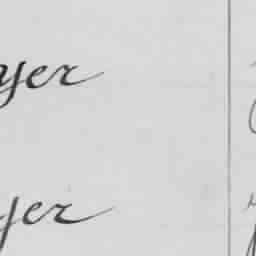 yer
yer